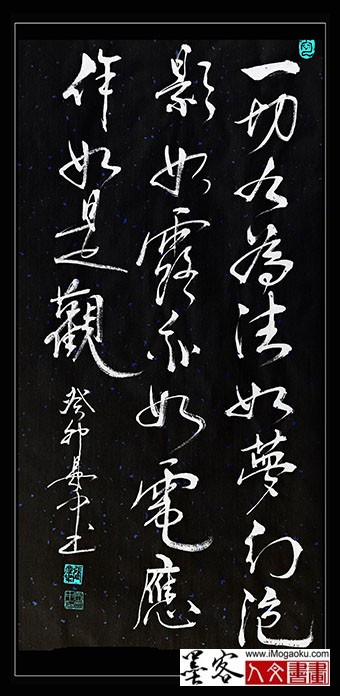 一切有為法如夢幻泡
影如露亦如電應
作如是觀
癸卯
墨客
www.iMogaoku.com
人文書畫